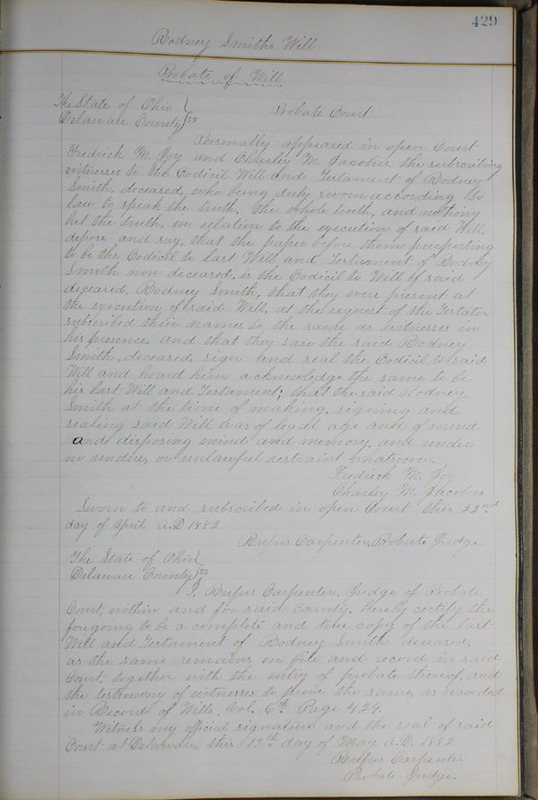 429
Rodney Smiths Will
Probate of Will
The State of Ohio
Delaware County } ss Probate Court
Personally appeared in open Court
Fredrick M. Joy and Charley M. Jacobus the subscribing
witnesses to the Codicil Will and Testament of Rodney
Smith, deceased, who being duly sworn according to
law to speak the truth, the whole truth, and nothing
but the truth, in relation to the execution of said Will,
depose and say, that the paper before them purporting
to be the Codicil to last Will and Testiment of Rodney
Smith now deceased, is the Codicil to Will of said
deceased, Rodney Smith, that they were present at
the execution of said Will, at the request of the Testator
subscribed their names to the same as witnesses in
his presence and that they saw the said Rodney
Smith, deceased sign and seal the Codicil to said
Will and heard him acknowledge the same to be
his last Will and Testament; that the said Rodney
Smith at the time of making, signing and
sealing said Will was of legal age and of sound
and disposing mind and memory, and under
no undue, or unlawful restraint whatsoever.
Fredrick M. Joy
Charley M.
Sworn to and subscribed in open Court this 22nd
day of April A.D 1882
Rufus Carpenter, Probate Judge
The State of Ohio
Delaware County } ss
I, Rufus Carpenter, Judge of Probate
Court, within and for said County, hereby certify the
forgoing to be a complete and true copy of the last
Will and Testament of Rodney Smith deceased,
as the same remains on file and record in said
Court, together with the entry of probate thereof, and
the testimony of witnesses to prove the same, as recorded
in Record of Wills, Vol. 6th Page 424.
Witness my official signature and the seal of said
Court at Delaware, this 12th day of May A.D. 1882
Rufus Carpenter
Probate Judge.